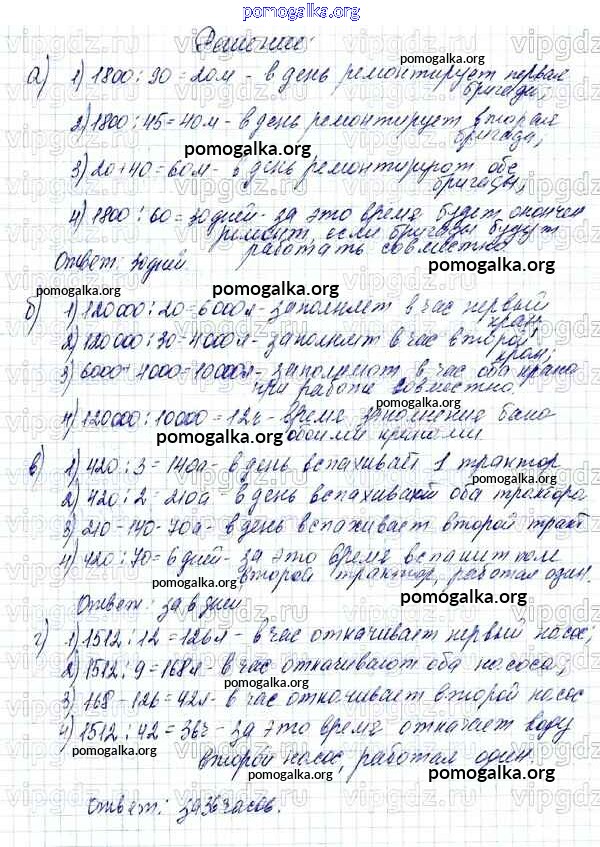 pomogalka.org
Решение:
pomogalka.org
а) 1) 1800 : 90 = 20м - в день ремонтирует первая
бригада;
2) 1800 : 45 = 40м - в день ремонтирует вторая
бригада;
pomogalka.org
3) 20 + 40 = 60м - в день ремонтируют обе
бригады;
pomogalka.org
4) 1800 : 60 = 30 дней - за это время будет окончен
ремонт, если бригады будут
работать совместно
Ответ: 30 дней.
pomogalka.org
pomogalka.org
б) 1) 120000 : 20 = 6000л - заполняет в час первый
кран;
2) 120000 : 30 = 4000л - заполнит в час второй
кран;
3) 6000 + 4000 = 10000л - заполняют в час оба крана
при работе совместно.
pomogalka.org
4) 120000 : 10000 = 12ч - время заполнение бака
обоими кранами
pomogalka.org
в) 1) 420 : 3 = 140а - в день вспахивает 1 трактор
pomogalka.org
2) 420 : 2 = 210а - в день вспахивают оба трактора
3) 210 - 140 = 70а - в день вспахивает второй тракт
4) 420 : 70 = 6 дней - за это время вспашит поле
второй трактор, работая один.
pomogalka.org
pomogalka.org
Ответ: за 6 дней
г) 1) 1512 : 12 = 126л - в час откачивает первый насос;
2) 1512 : 9 = 168л - в час откачивают оба насоса;
pomogalka.org
3) 168 - 126 = 42л - в час откачивает второй насос
4) 1512 : 42 = 36ч - за это время откачает воду
pomogalka.org
второй насос, работая один.
pomogalka.org
pomogalka.org
Ответ: за 36 часов.